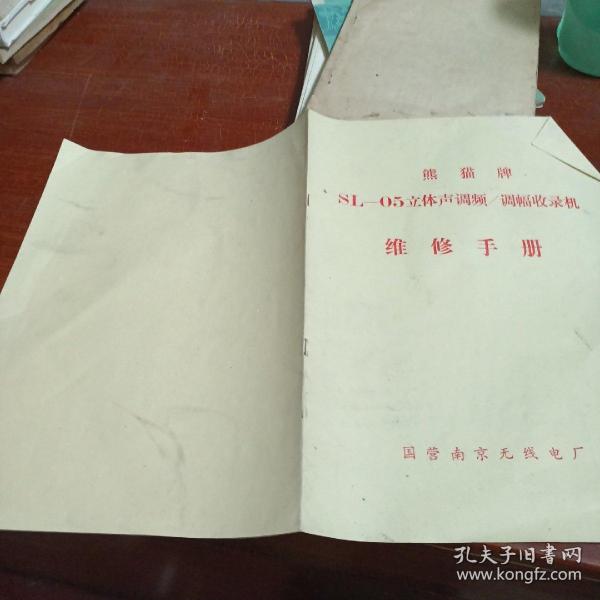 熊猫牌
SL—05立体声调频/调幅收录机
维修手册
国营南京无线电厂
孔夫子旧书网
www.kongfz.com